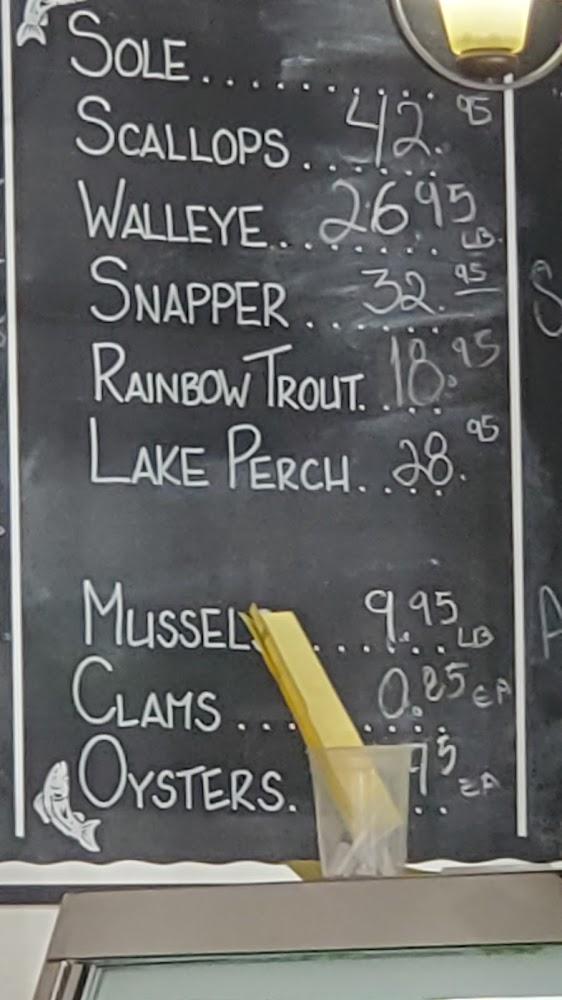 SOLE........
SCALLOPS...... 42.95
WALLEYE........ 26.95 LB.
SNAPPER....... 32.95
RAINBOW TROUT..... 18.95
LAKE PERCH..... 28.95
MUSSEL ....... 9.95 LB
CLAMS ....... 0.85 EA
OYSTERS... 95 EA